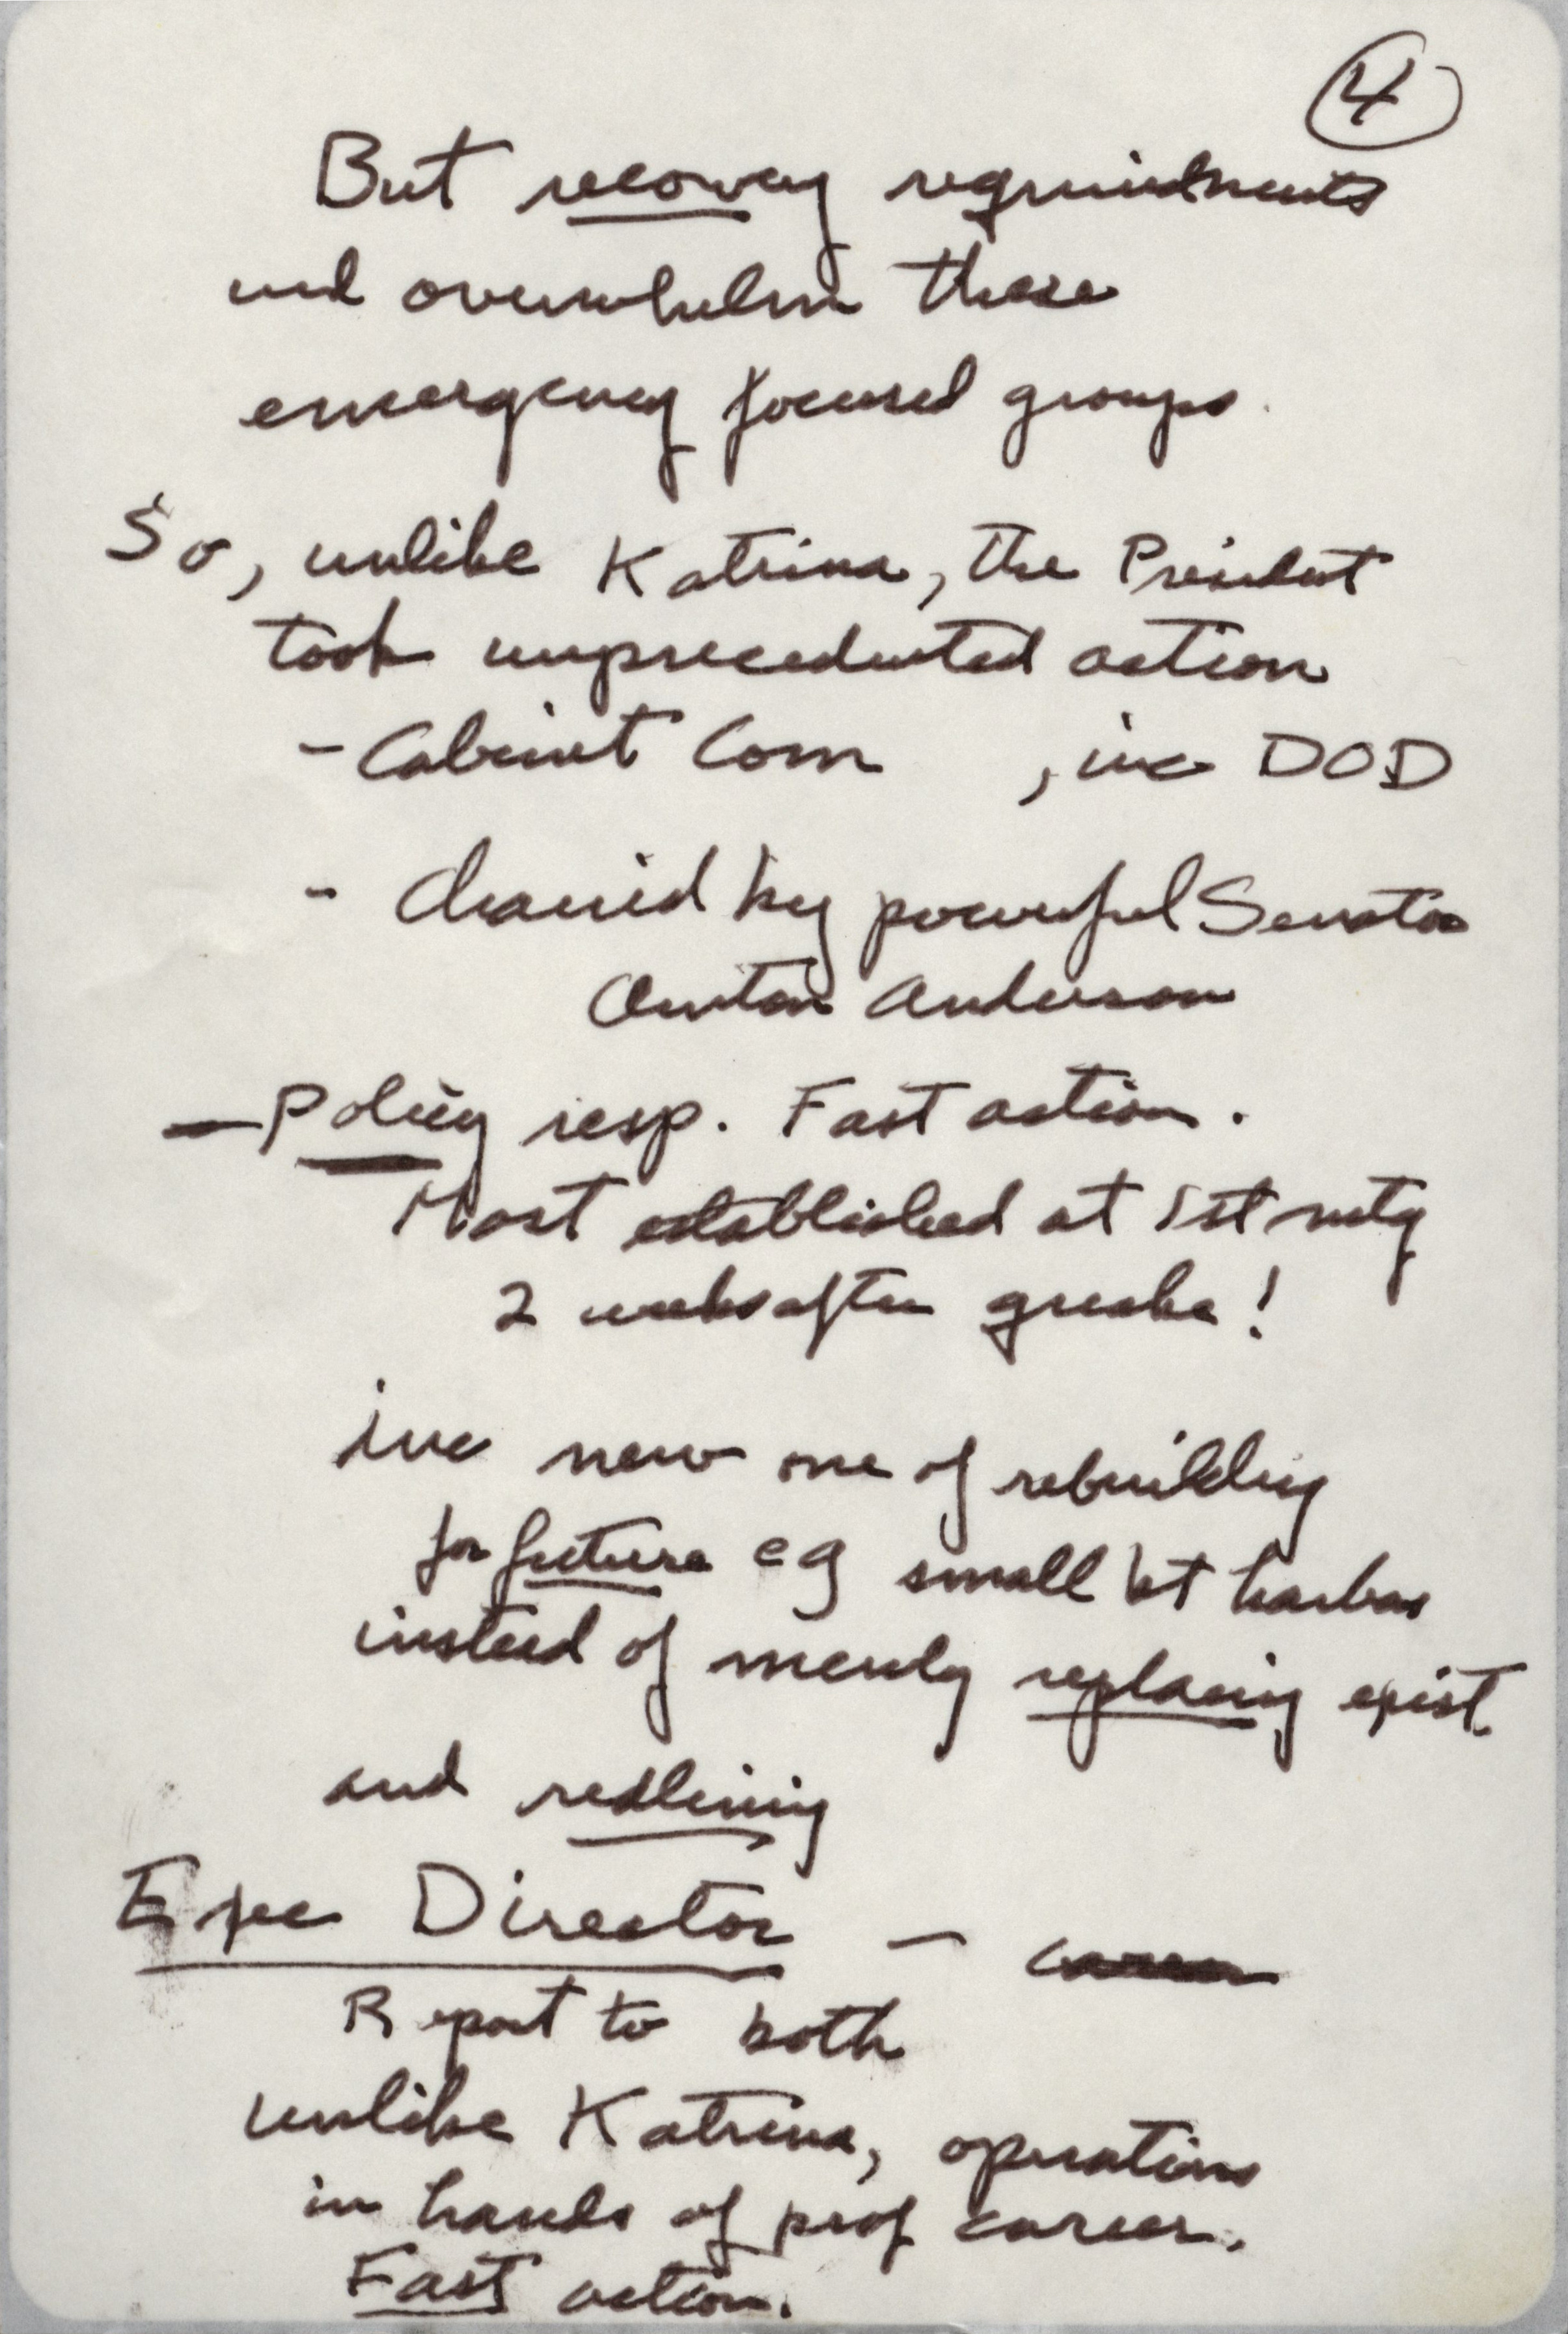 4
But recovery requirements
wd overwhelm these
emergency focused groups.
So, unlike Katrina, the President
took unprecedented action
- Cabinet Com , inc DOD
- Chaired by powerful Senator
Clinton Anderson
- Policy resp. Fast action.
Most established at 1st mtg
2 weeks after quake!
inc new one of rebuilding
for future eg small bt harbors
instead of merely replacing exist
and redlining
Exec Director -
Report to both
unlike Katrina, operations
in hands of prof career.
Fast action.